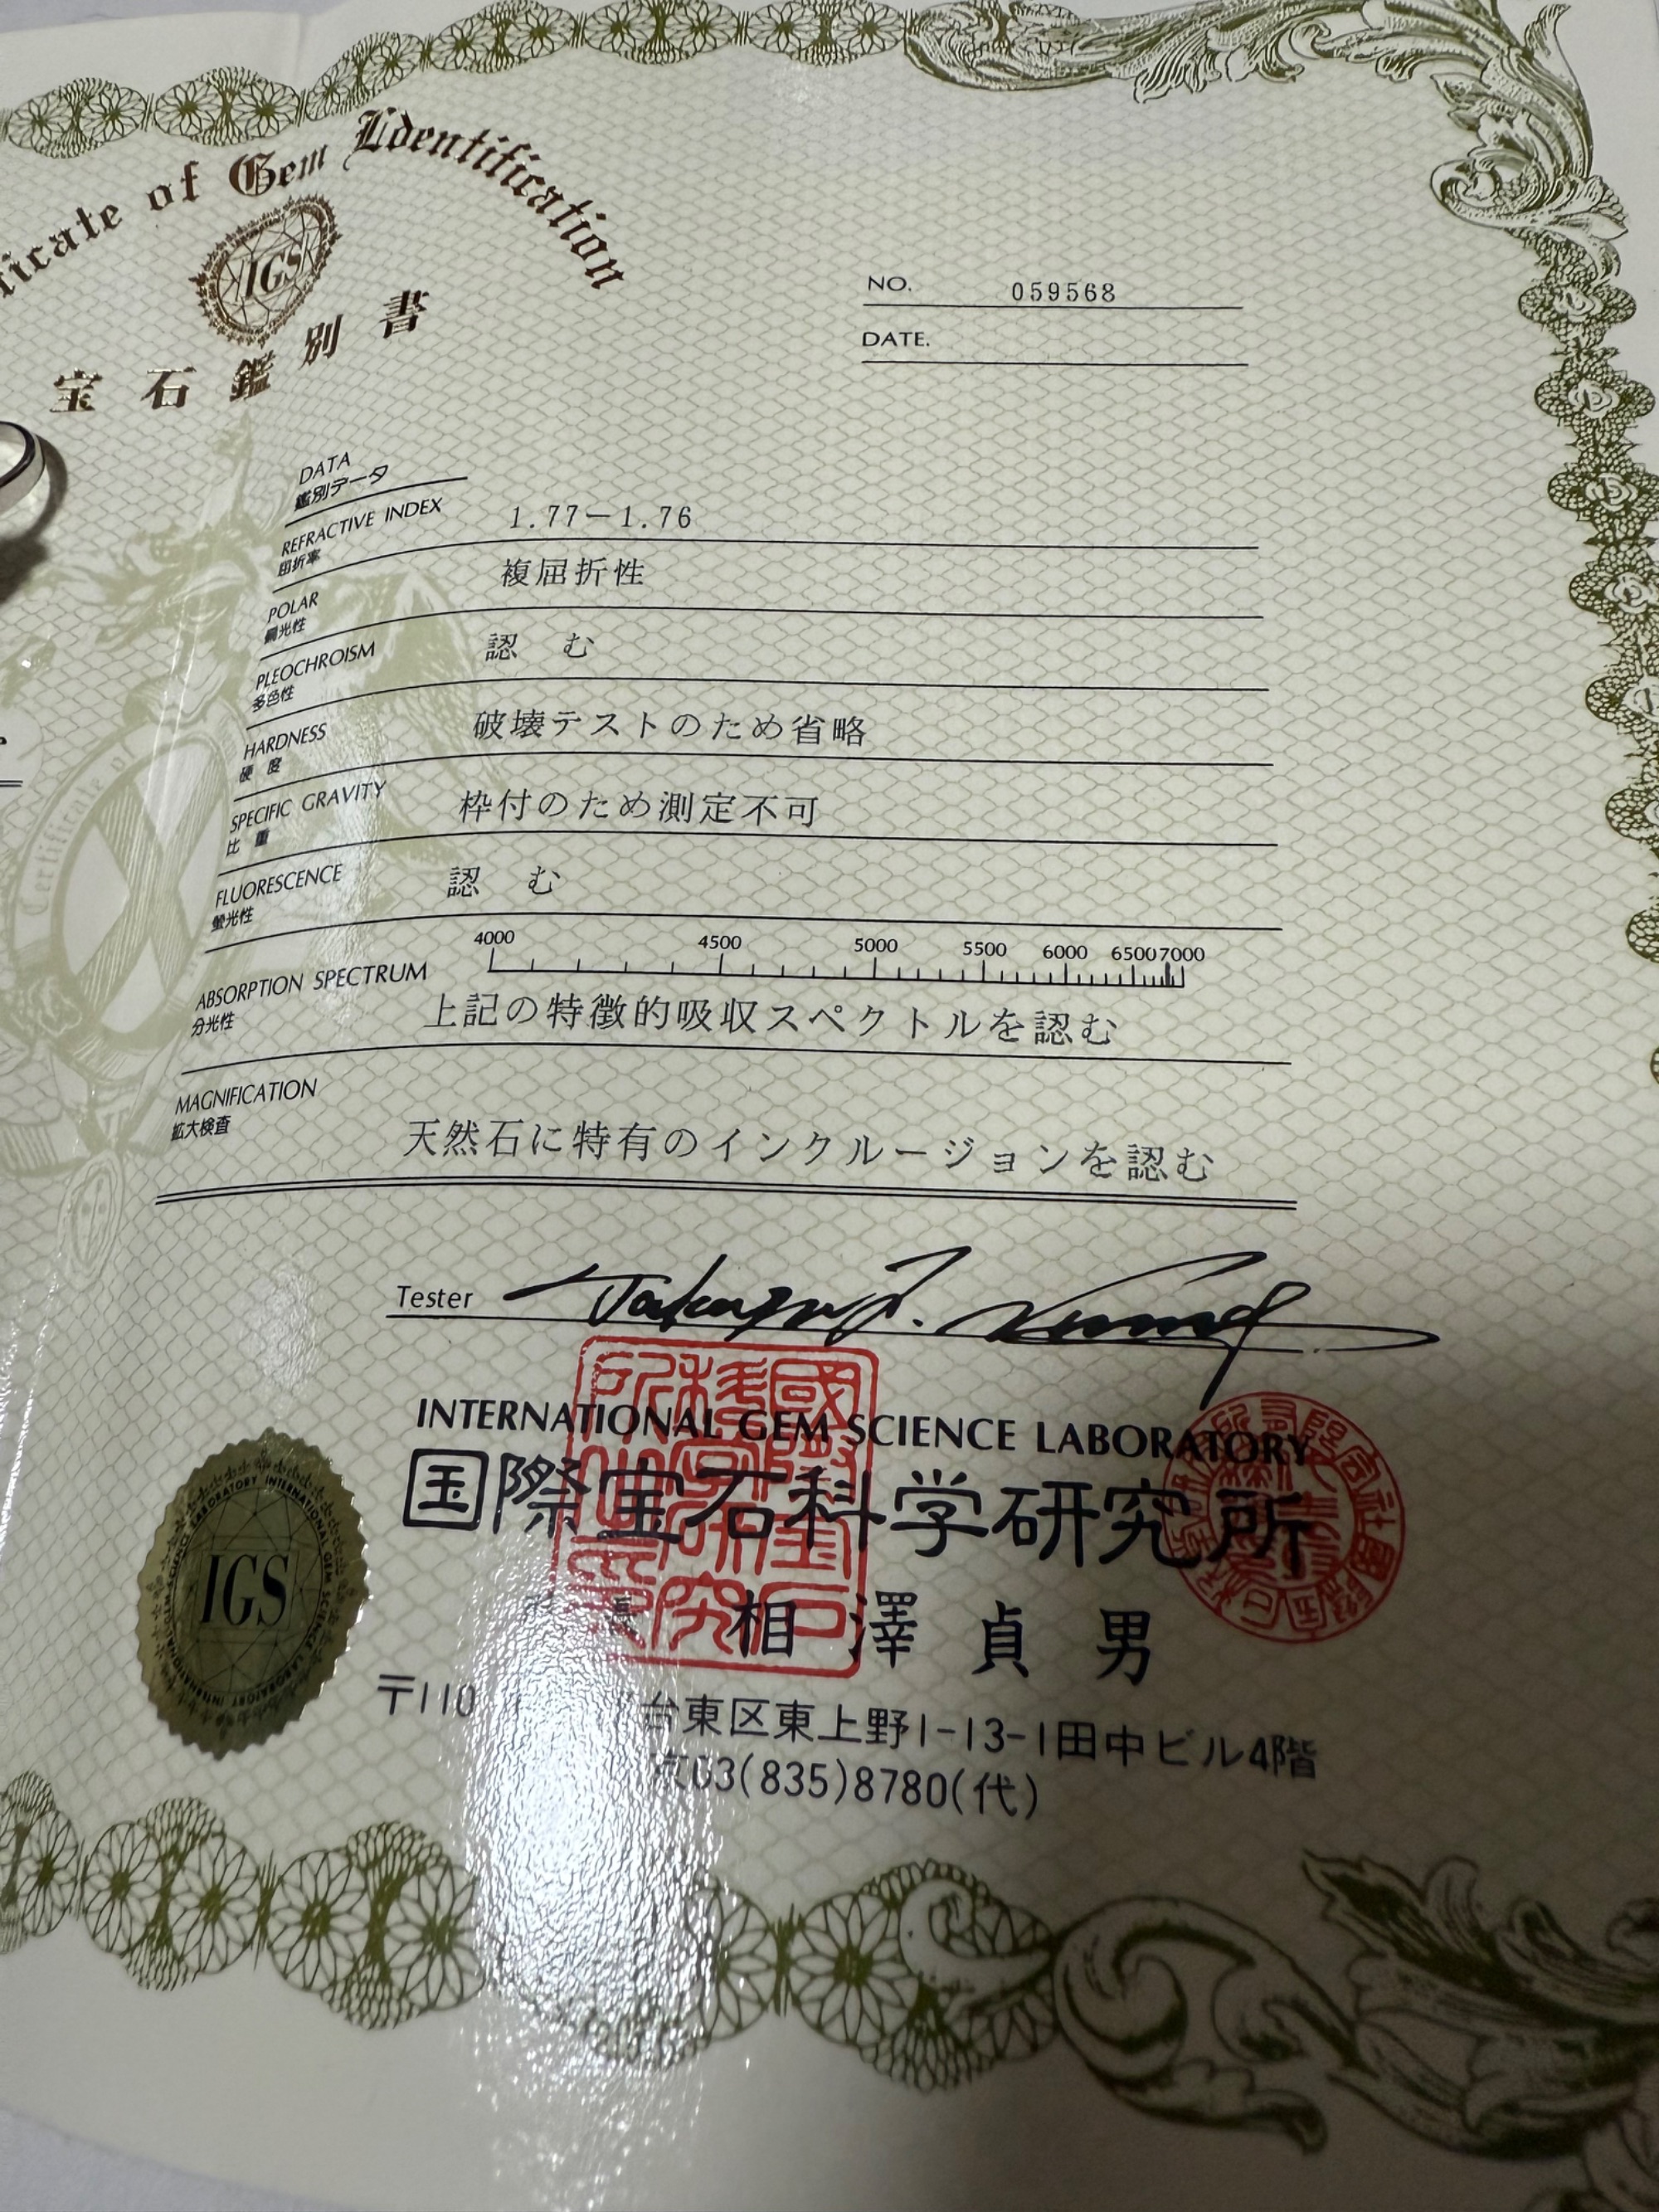 of Gem Identification
IGS
宝石鑑別書
NO. 059568
DATE.
DATA
鑑別データ
REFRACTIVE INDEX 1.77−1.76
屈折率
POLAR 複屈折性
偏光性
PLEOCHROISM 認 む
多色性
HARDNESS 破壊テストのため省略
硬 度
SPECIFIC GRAVITY 枠付のため測定不可
比 重
FLUORESCENCE 認 む
螢光性
4000 4500 5000 5500 6000 6500 7000
ABSORPTION SPECTRUM
分光性 上記の特徴的吸収スペクトルを認む
MAGNIFICATION
拡大検査 天然石に特有のインクルージョンを認む
Tester
INTERNATIONAL GEM SCIENCE LABORATORY
国際宝石科学研究所
IGS
長 相澤貞男
〒110 台東区東上野1-13-1田中ビル4階
03(835)8780(代)